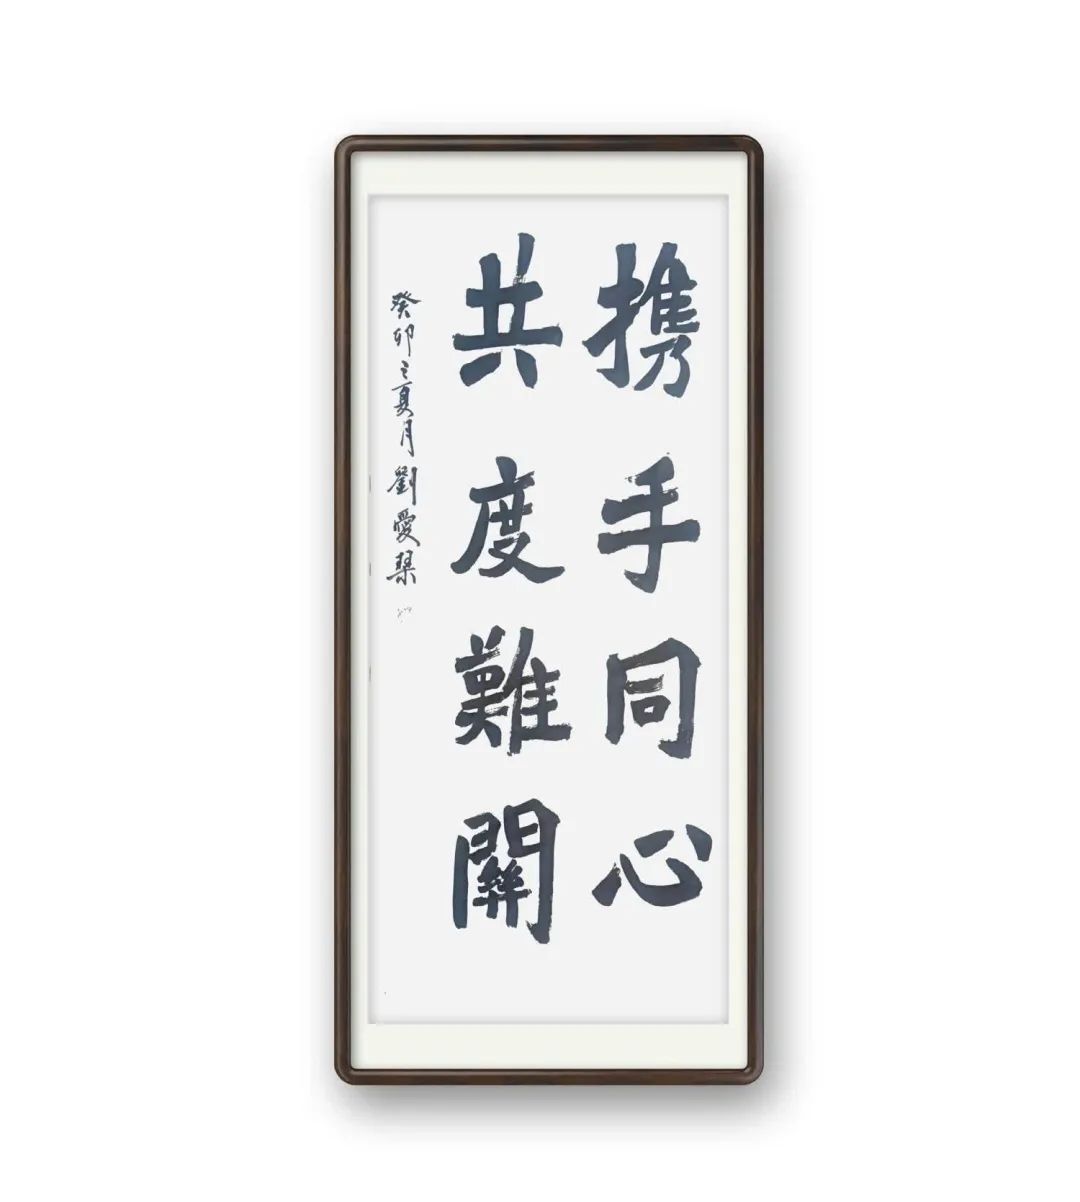 携手同心
共度難關
癸卯之夏月劉愛琹